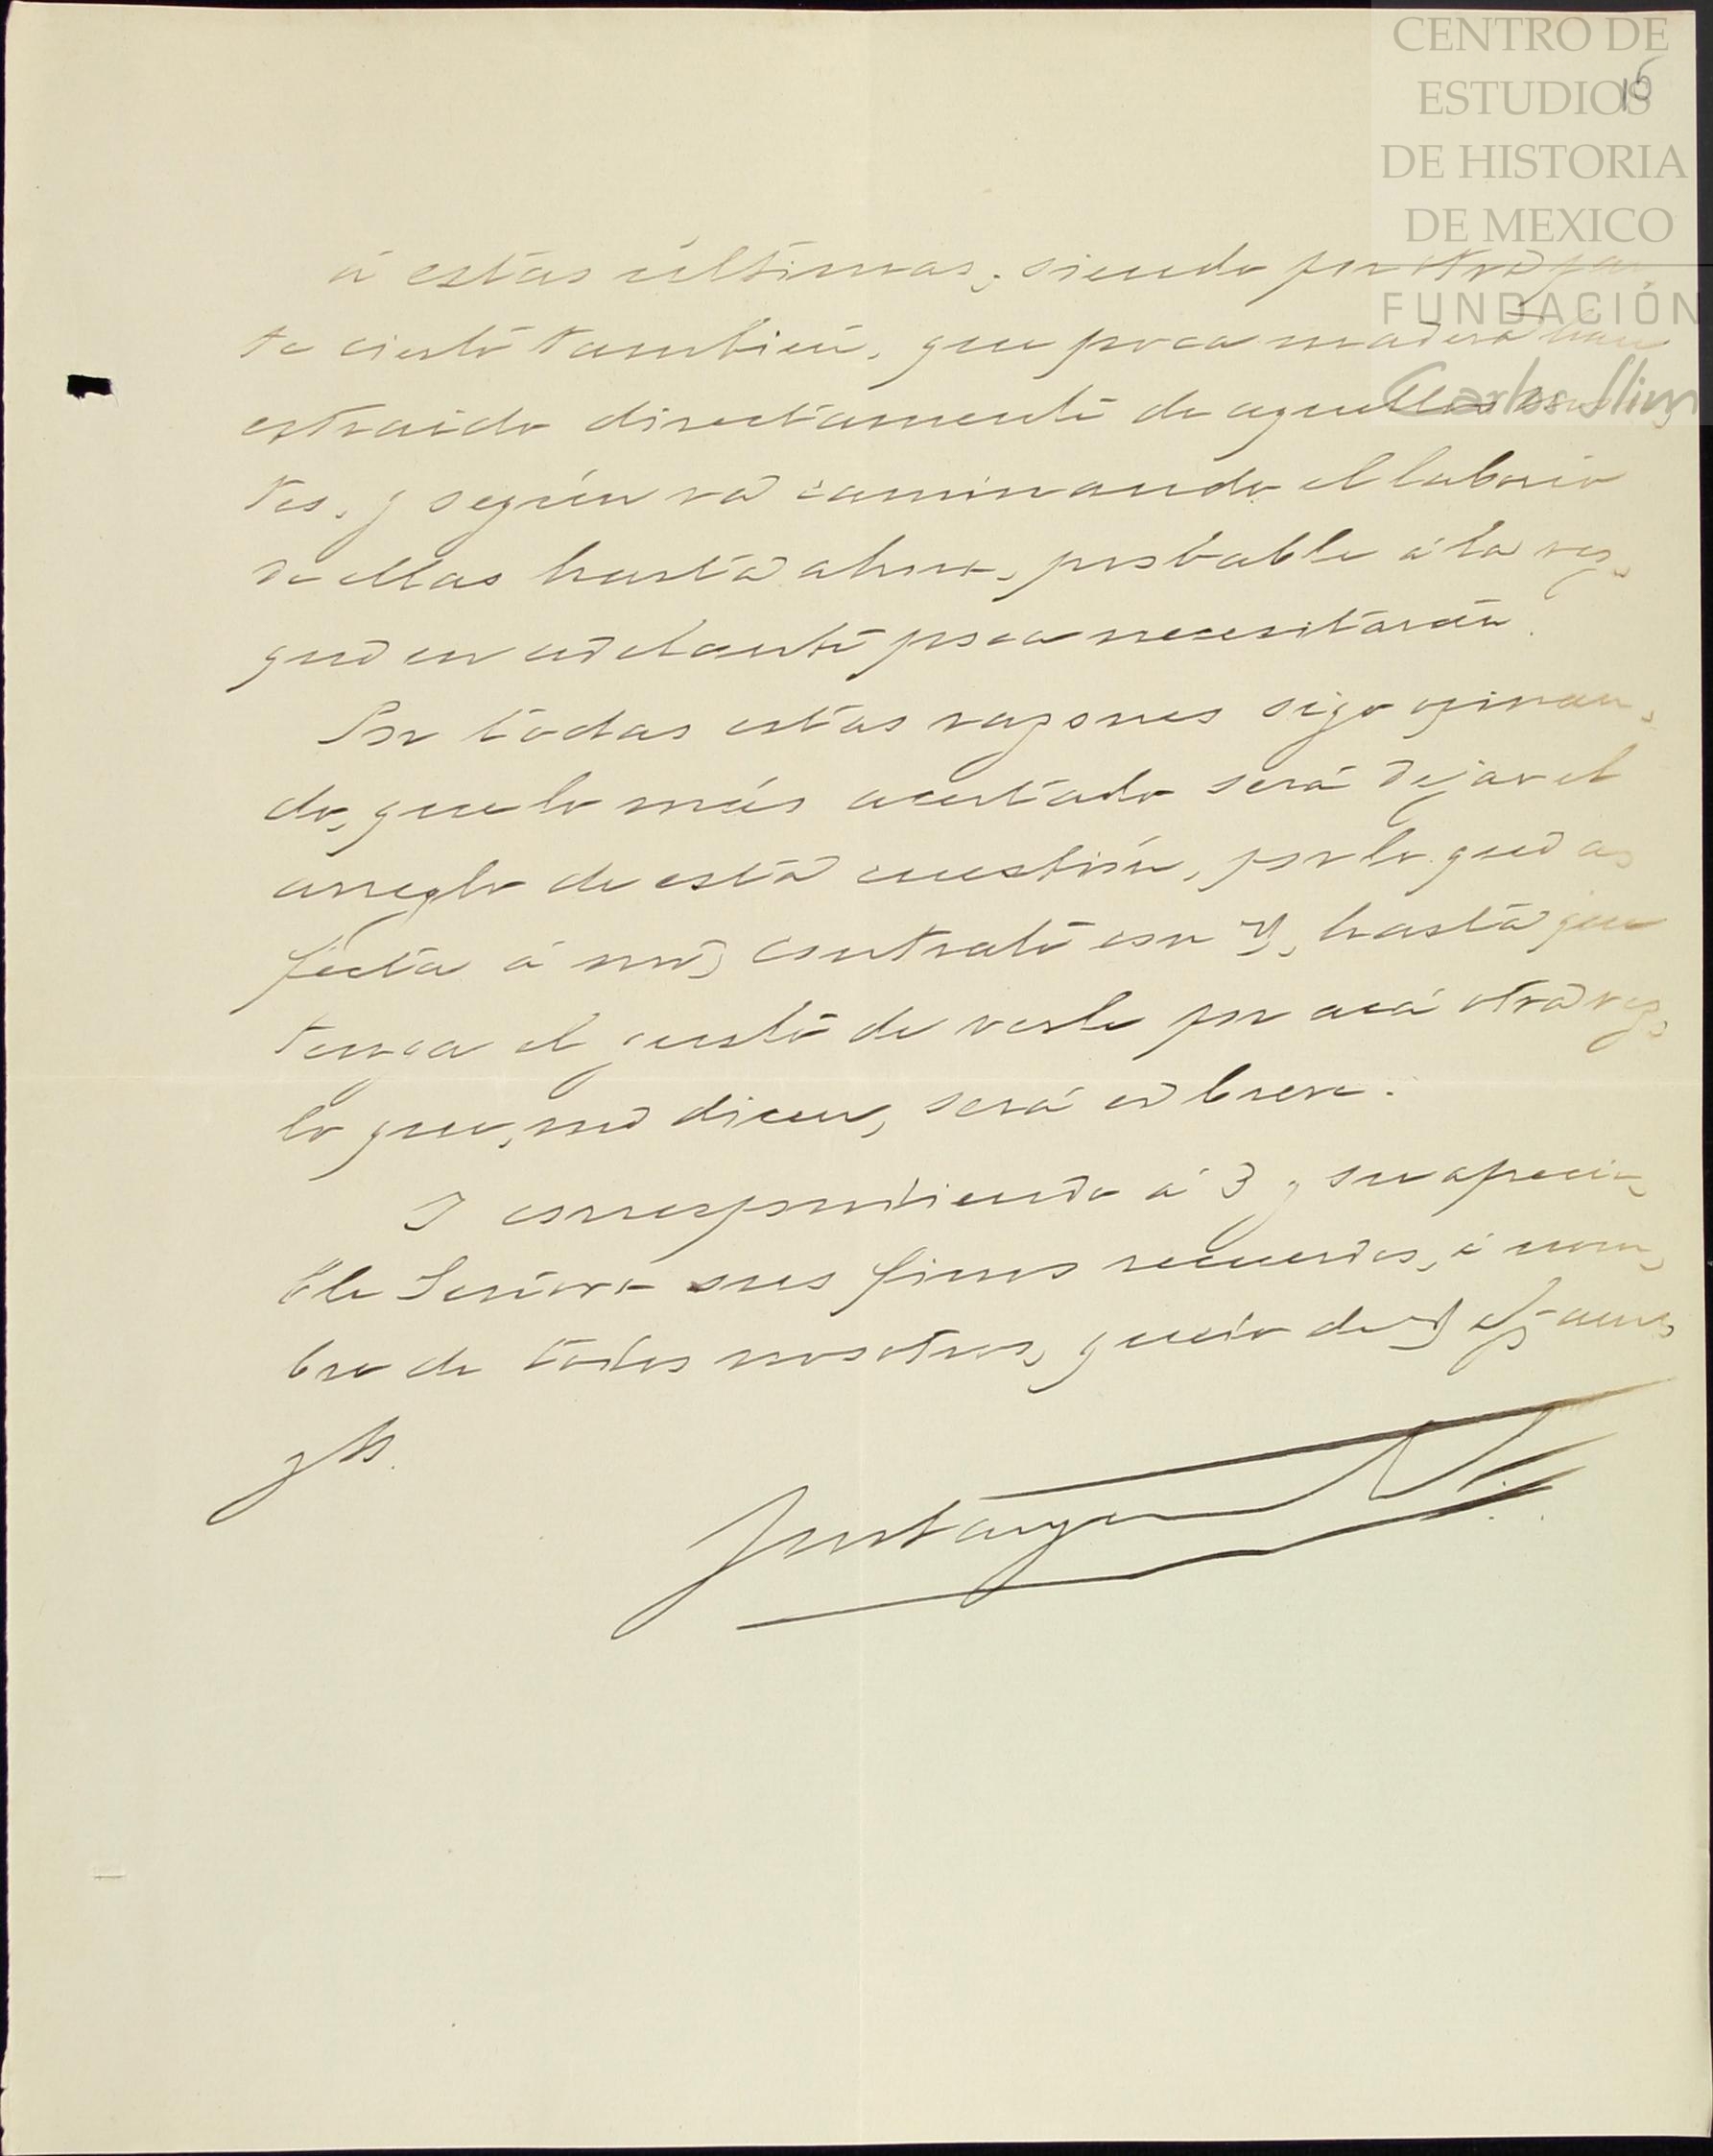 CENTRO DE
ESTUDIOS
DE HISTORIA
DE MEXICO
FUNDACIÓN
Carlos Slim
15
á estas últimas; siendo por otra par
te cierto también, que poca madera han
estraido directamente de aquellos
tes, y según va caminando el laborío
de ellas hasta ahora, probable á la vez,
que en adelante poca necesitarán.
Por todas estas razones sigo opinan-
do, que lo más acertado será dejar el
arreglo de esta cuestión, por lo que a
fecta á mi contrato con V, hasta que
tenga el gusto de verle por acá otra vez,
lo que, me dicen, será en breve.
Y correspondiendo á V y su aprecia-
ble Señora sus finos recuerdos, á nom-
bre de todos nosotros, quedo de V af amo
y S.